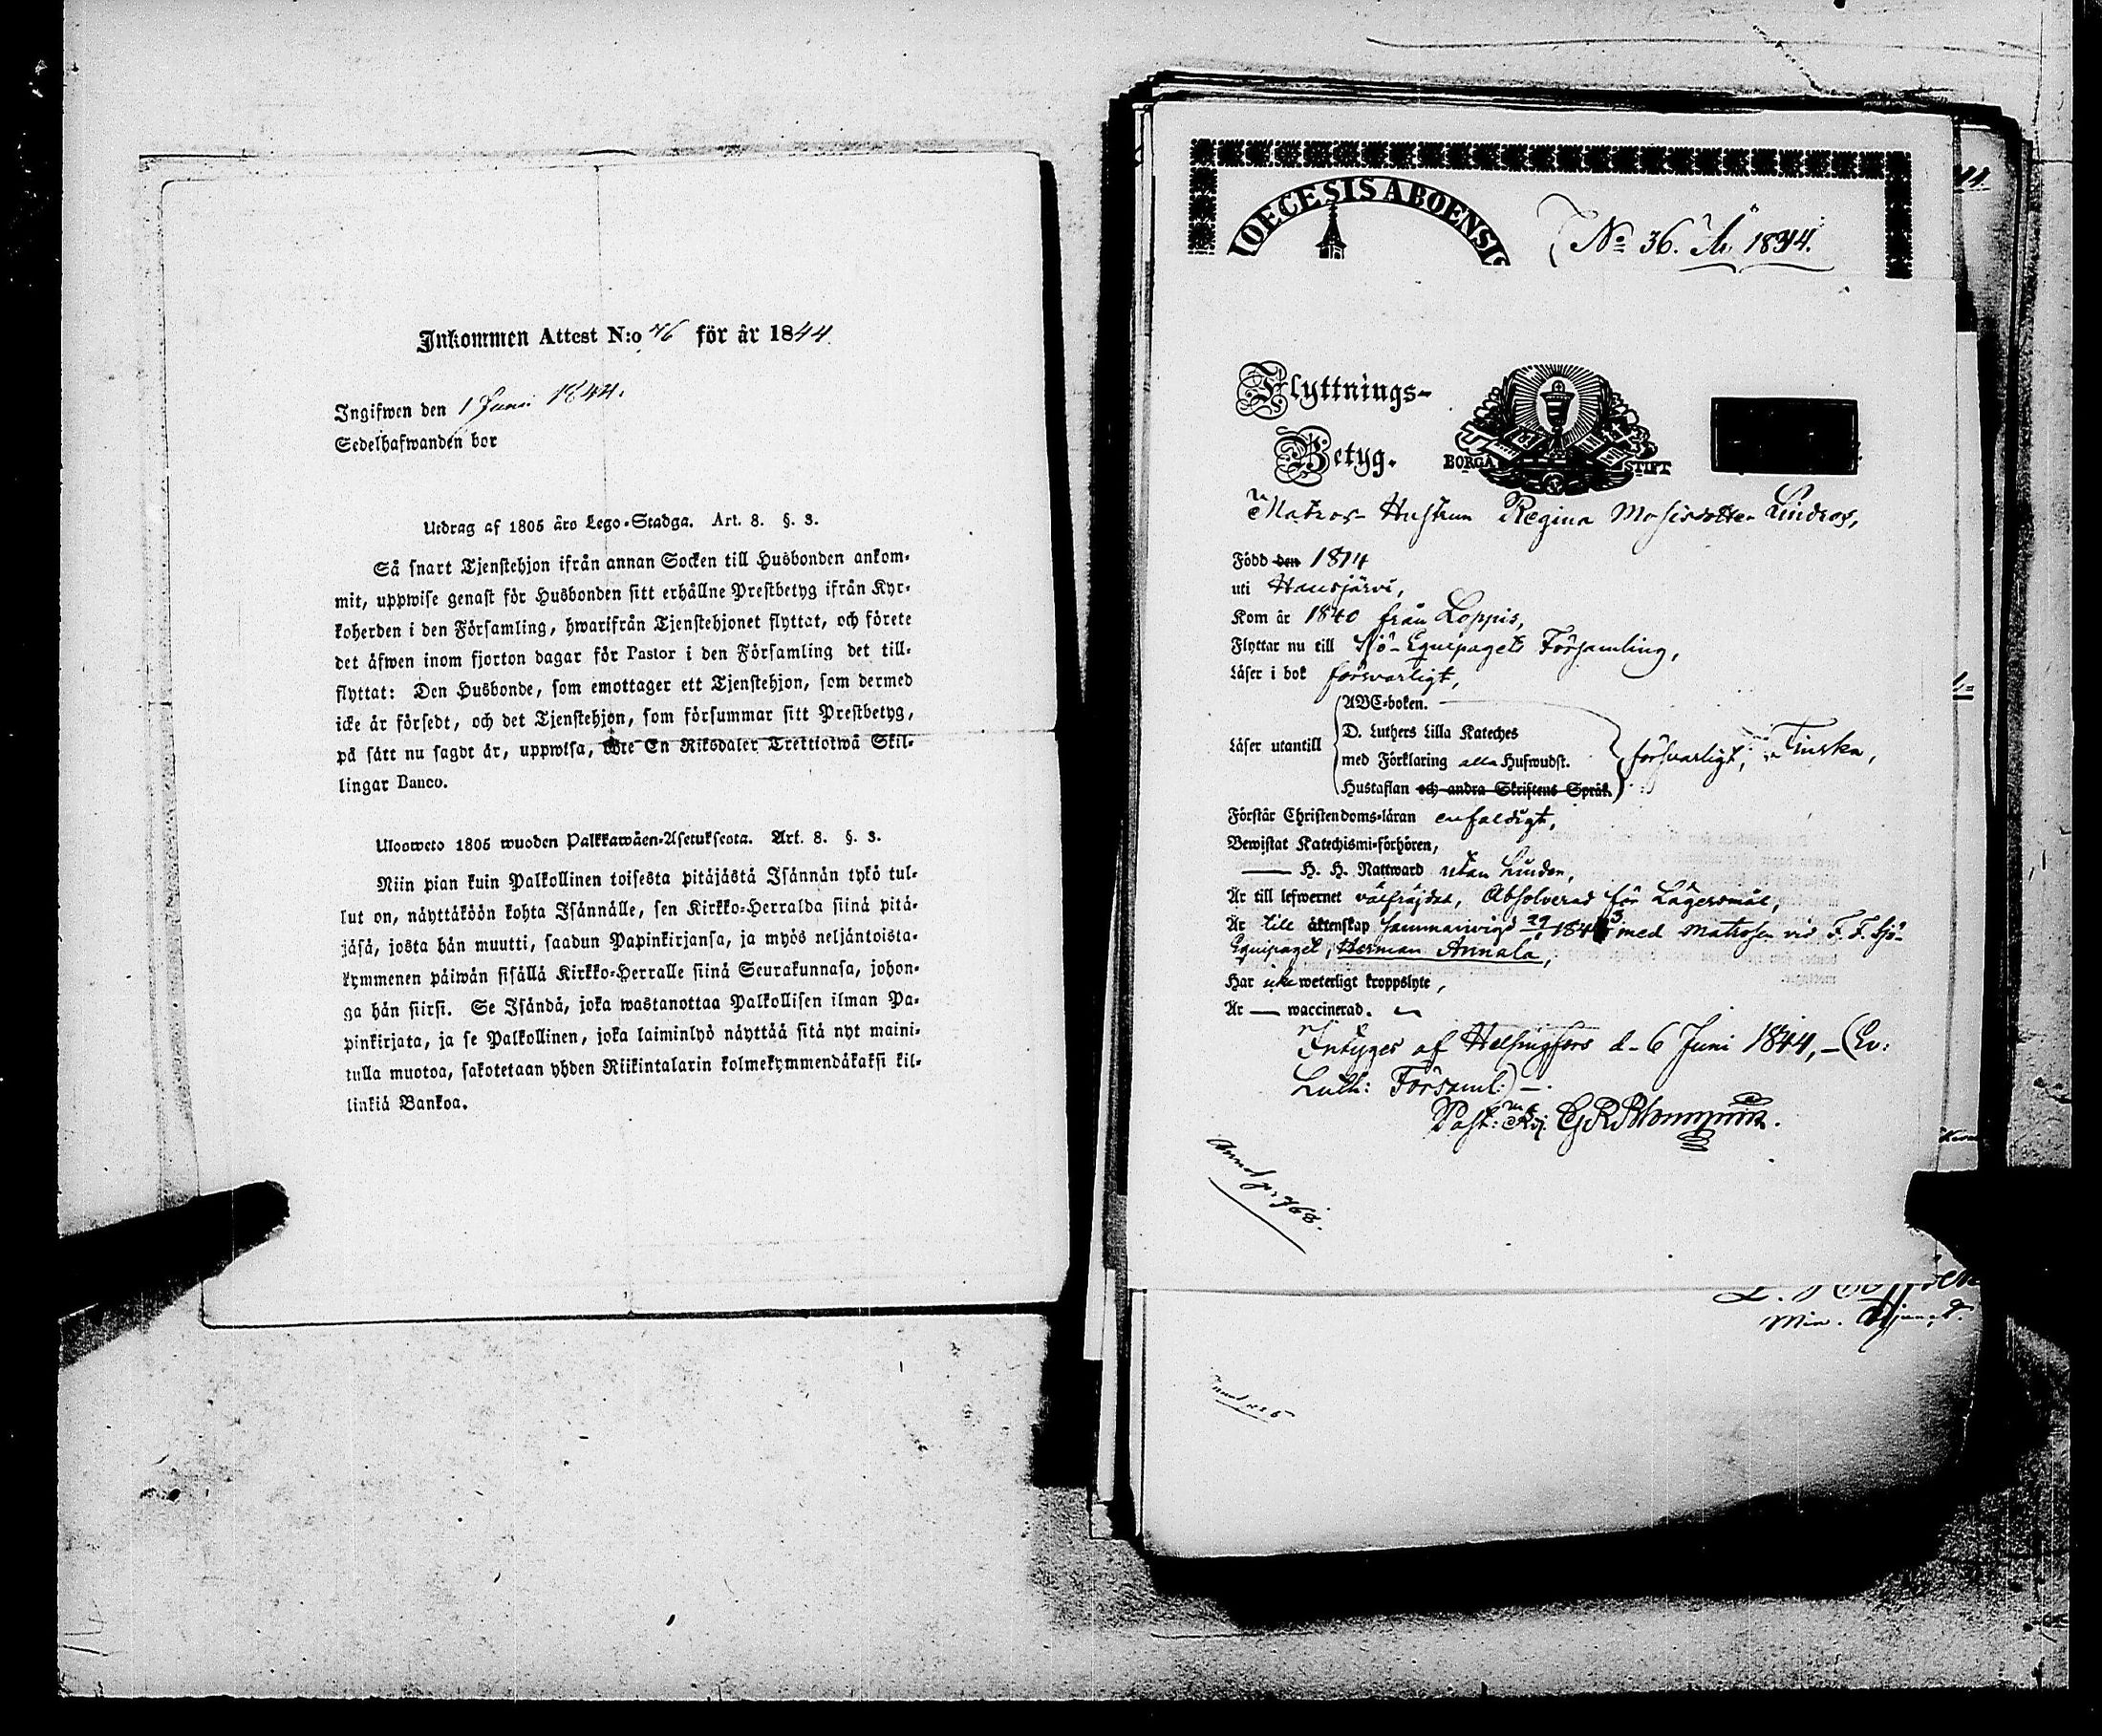 Inkommen Attest N:o 46 för år 1844
Ingifwen den 1 Juni 1844.
Sedelhafwanden bor
Utdrag af 1805 års Lego-Stadga. Art. 8. §. 3.
Så snart Tjenstehjon ifrån annan Socken till Husbonden ankom-
mit, uppwise genast för Husbonden sitt erhållne Prestbetyg ifrån Kyr-
koherden i den Församling, hwarifrån Tjenstehjonet flyttat, och förete
det äfwen inom fjorton dagar för Pastor i den Församling det till-
flyttat: Den Husbonde, som emottager ett Tjenstehjon, som dermed
icke är försedt, och det Tjenstehjon, som försummar sitt Prestbetyg,
på sätt nu sagdt är, uppwisa, böte En Riksdaler Trettiotwå Skil-
lingar Banco.
Ulosweto 1805 wuoden Palkkawäen-Asetuksesta. Art. 8. §. 3.
Niin pian kuin Palkollinen toisesta pitäjästä Isännän tykö tul-
lut on, näyttäköön kohta Isännälle, sen Kirkko-Herralda siinä pitä-
jäsä, josta hän muutti, saadun Papinkirjansa, ja myös neljäntoista-
kymmenen päiwän sisällä Kirkko-Herralle siinä Seurakunnasa, johon-
ga hän siirsi. Se Isändä, joka wastanottaa Palkollisen ilman Pa-
pinkirjata, ja se Palkollinen, joka laiminlyö näyttää sitä nyt maini-
tulla muotoa, sakotetaan yhden Riikintalarin kolmekymmendäkaksi kil-
linkiä Bankoa.
IOECESIS ABOENSIS
No 36. År 1844.
Flyttnings-
Betyg.
BORGÅ STIFT
Matros Hustrun Regina Mosisdotter Lindros,
Född den 1814
uti Hausjärvi,
Kom år 1840 från Loppis,
Flyttar nu till Sjö-Equipagets Församling,
Läser i bok försvarligt,
Läser utantill
ABC-boken.
D. Luthers Lilla Kateches
med Förklaring alla Hufwudst.
Hustaflan och andra Skriftens Språk.
försvarligt, Finska,
Förstår Christendoms-läran enfaldigt,
Bewistat Katechismi-förhören,
— H. H. Nattward utan Linden,
Är till lefwernet välfräjdad, Absolverad för Lägersmål,
Är till äktenskap sammanvigd 29 1843 med Matrosen vid F. F. Sjö-
Equipaget, Herman Annala,
Har icke weterligt kroppslyte,
Är — waccinerad.
Intyges af Helsingfors d. 6 Juni 1844, — (Ev:
Luth: Församl:) —.
Past: Adj.
Annot p. 768.
Min. Adjunct.